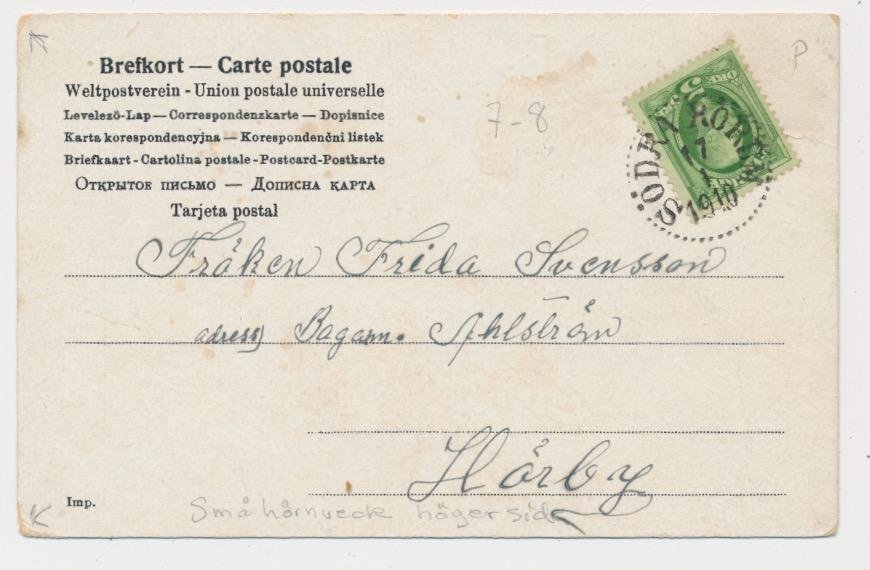 Brefkort — Carte postale
Weltpostverein - Union postale universelle
Levelező-Lap — Correspondenzkarte — Dopisnice
Karta korespondencyjna — Korespondenčni listek
Briefkaart - Cartolina postale - Postcard - Postkarte
Открытое письмо — Дописна карта
Tarjeta postal
P
7-8
SÖDRA RÖRUM
17
1
1910
5
Fröken Frida Svensson
adress Bagarm. Ahlström
Hörby
Imp.
Små hörnveck höger sida
K